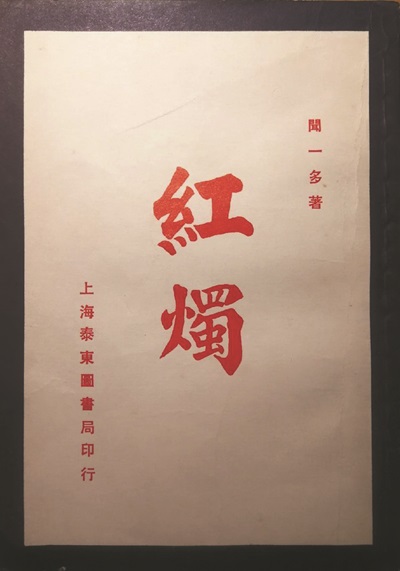 聞一多著
紅燭
上海泰東圖書局印行